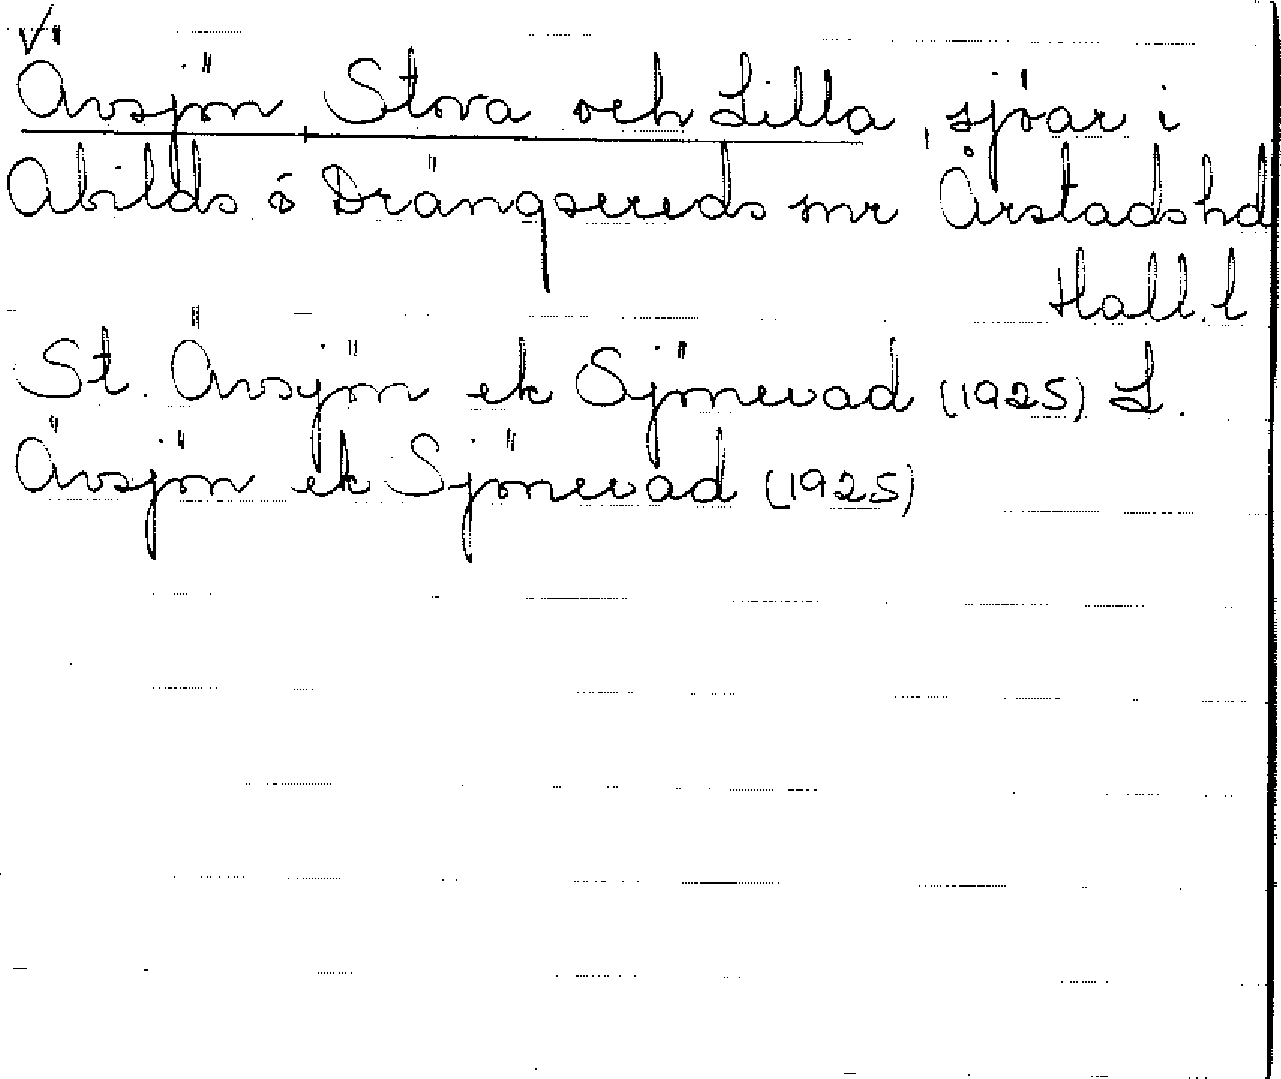 Ävsjön, Stora och Lilla, sjöar i
Abilds o Drängsereds snr Årstads hd
Hall. l
St. Ävsjön ek Sjönevad (1925) L.
Ävsjön ek Sjönevad (1925)